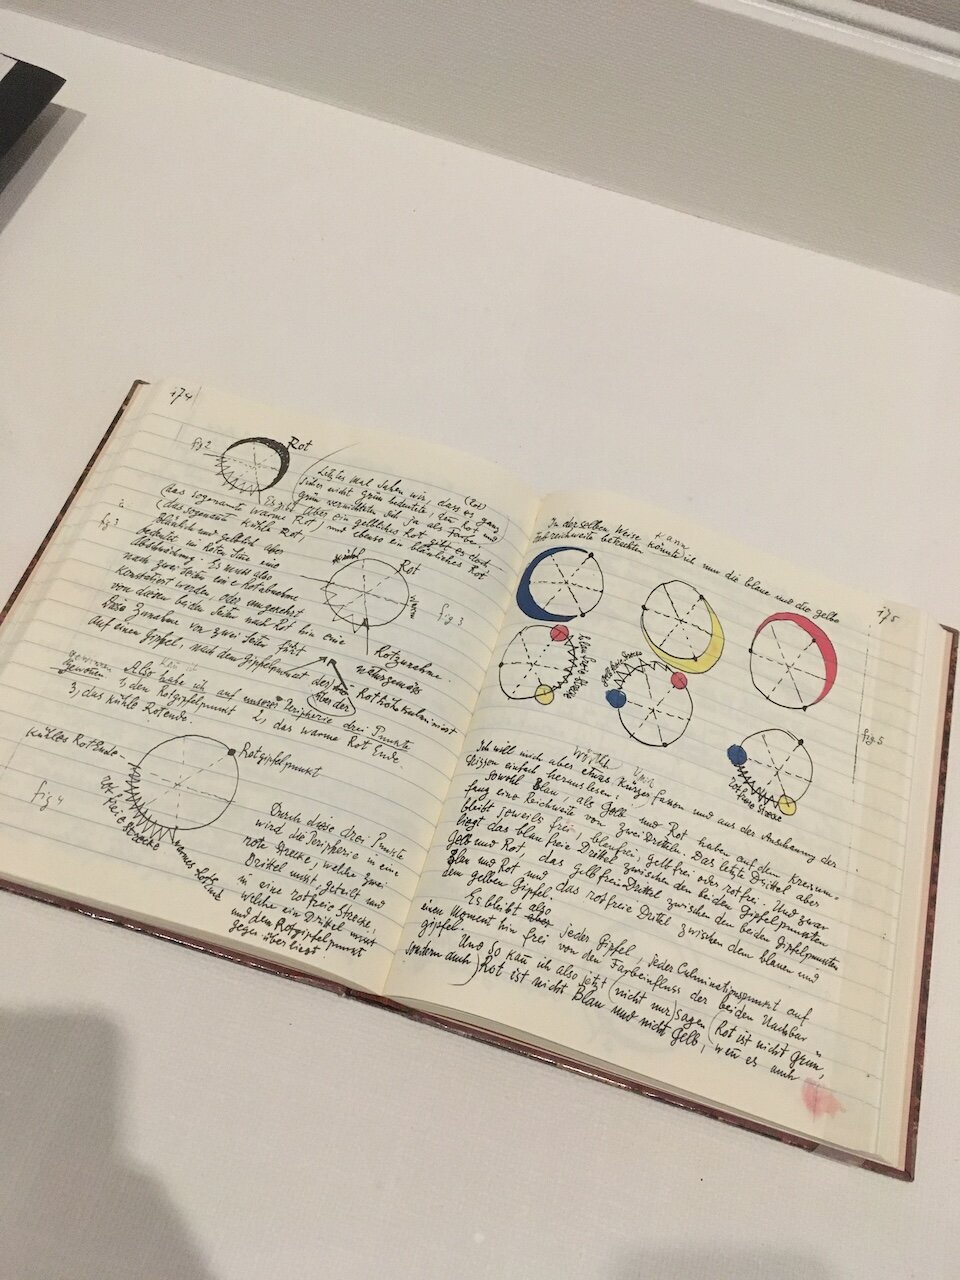 174
fig 2
Rot
Letztes Mal sahen wir, dass es ganz (Rot)
sicher nicht Grün bedeutete. Zum Rot und
grün vernichten sich ja als Farbe.
Es gibt aber ein gelbliches Rot
(das sogenannte warme Rot) und ebenso ein bläuliches Rot
(das sogenannt kühle Rot,
bläulich und gelblich aber
bedeutet im roten Sinn eine
Abschwächung. Es muss also
nach zwei Seiten eine Rotabnahme
konstatiert werden, oder umgekehrt
von diesen beiden Seiten nach Rot hin eine
Diese Zunahme von zwei Seiten führt
auf einen Gipfel, nach dem Gipfelpunct der
oder der
fig 3
Rot
warm
fig. 3
Rotzunahme
Rot
gewinnen
kan ich
Also habe ich auf unserer Peripherie drei Punkte
gewonnen 1, den Rotgipfelpunkt 2, das warme Rot Ende.
3, das kühle Rotende.
kühles Rot Ende
Rotgipfelpunkt
rot freie Strecke
warmes Rot Ende
fig 4
Durch diese drei Punkte
wird die Peripherie in eine
rote Strecke, welche zwei
Drittel misst, geteilt und
in eine rotfreie Strecke,
welche ein Drittel misst
und dem Rotgipfelpunkt
gegenüber liegt.
175
kann
In derselben Weise könnte ich nun die blaue und die gelbe
Reichweite betrachten
blau freie Strecke
gelb freie Strecke
rot freie Strecke
fig. 5
Ich will mich aber etwas kürzer fassen und aus der Anschauung der
Skizzen einfach herauslesen:
Sowohl Blau, als Gelb und Rot haben auf dem Kreisum-
fang eine Reichweite von zwei Dritteln. Das letzte Drittel aber
bleibt jeweils frei, blaufrei, gelbfrei oder rotfrei. Und zwar
liegt das blau freie Drittel zwischen den beiden Gipfelpunkten
Gelb und Rot, das gelbfreie Drittel zwischen den beiden Gipfelpunkten
Blau und Rot und das rotfreie Drittel zwischen dem blauen und
dem gelben Gipfel.
Es bleibt also jeder Gipfel, jeder Culminationspunkt auf
einen Moment hin frei von den Farbeinfluss der beiden Nachbar =
gipfel.
Und so kan ich also jetzt (nicht nur) sagen (Rot ist nicht grün,
sondern auch) Rot ist nicht Blau und nicht Gelb, wen es auch